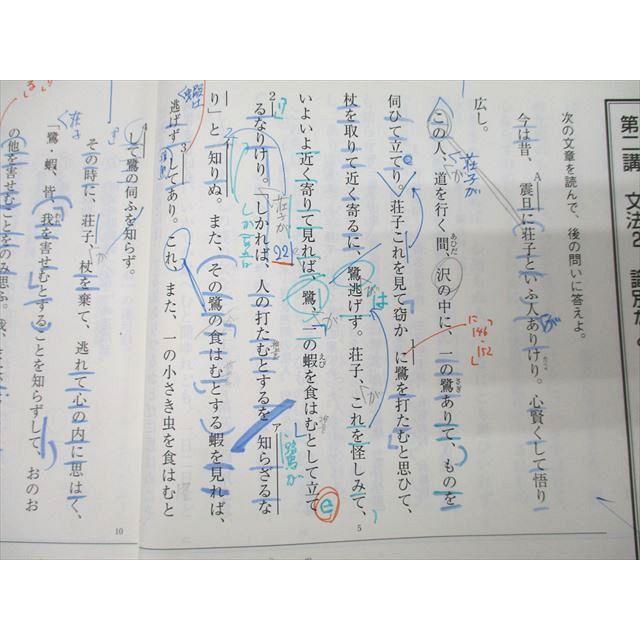 第二講　文法2
次の文章を読んで、後の問いに答えよ。
今は昔、震旦に荘子といふ人ありけり。心賢くして悟り
広し。
この人、道を行く間、沢の中に、一の鷺ありて、ものを
伺ひて立てり。荘子これを見て窃かに鷺を打たむと思ひて、
杖を取りて近く寄るに、鷺逃げず。荘子、これを怪しみて、
いよいよ近く寄りて見れば、鷺、一の蝦を食はむとして立て
るなりけり。しかれば、人の打たむとするを知らざるな
り」と知りぬ。また、その鷺の食はむとする蝦を見れば、
逃げずしてあり。これ、また、一の小さき虫を食はむと
して鷺の伺ふを知らず。
その時に、荘子、杖を棄て、逃れて心の内に思はく、
「鷺・蝦、皆、我を害せむとすることを知らずして、おのお
の他を害せむことをのみ思ふ。我、また、
A
あひだ
さぎ
えび
ア
1
2
3
4
5
10
荘子が
荘子が
鷺が
は
に
146
152
e